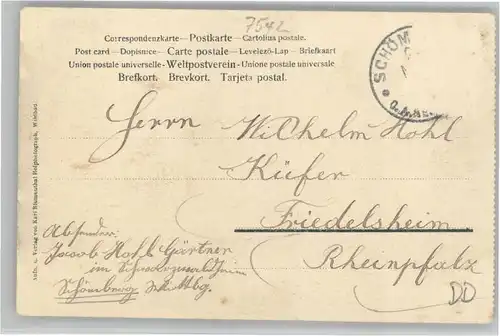 7542
Correspondenzkarte – Postkarte – Cartolina postale.
Post card – Dopisnice – Carte postale – Levelező-Lap – Briefkaart
Union postale universelle – Weltpostverein – Unione postale universale
Brefkort. Brevkort. Tarjeta postal.
SCHÖM
O.A.
Herrn Wilhelm Hohl
Küfer
Friedelsheim
Rheinpfalz
Absender:
Jacob Hohl Gärtner
im Schwarzwaldheim
Schömberg Wttbg.
DD
Aufn. u. Verlag von Karl Blumenthal Hofphotograph, Wildbad.